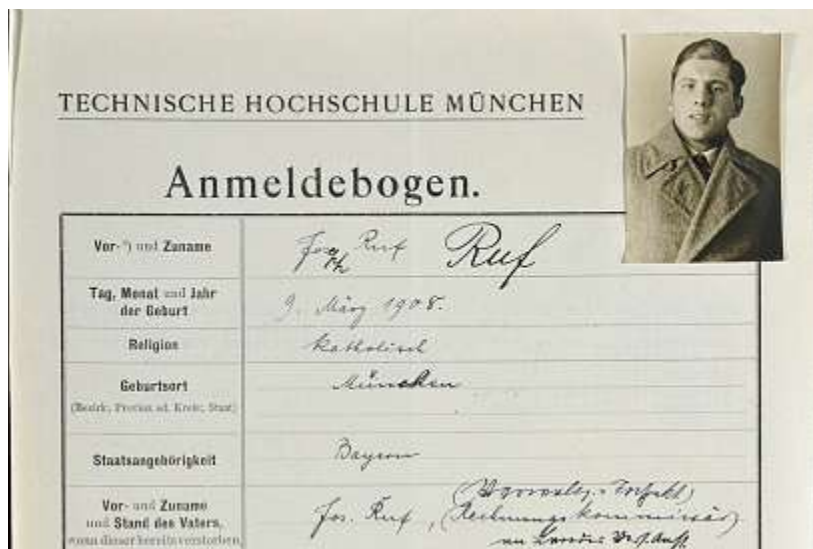 TECHNISCHE HOCHSCHULE MÜNCHEN
Anmeldebogen.
Vor-*) und Zuname
Joseph Ruf Ruf
Tag, Monat und Jahr
der Geburt
9. März 1908.
Religion
katholisch
Geburtsort
(Bezirk, Provinz od. Kreis, Staat)
München
Staatsangehörigkeit
Bayern
Vor- und Zuname
und Stand des Vaters,
wenn dieser bereits verstorben,
Jos. Ruf, (Rechnungskommissär)